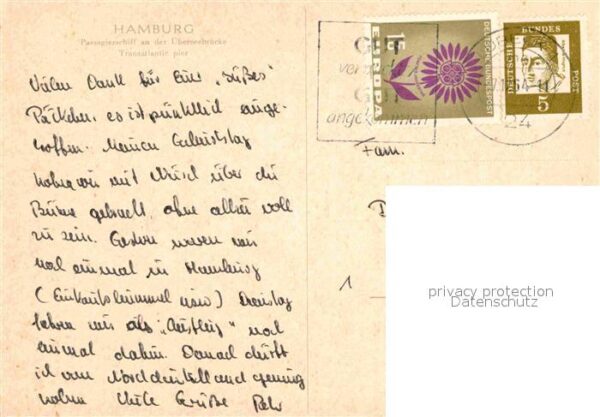 HAMBURG
Passagierschiff an der Überseebrücke
Transatlantic pier
Vielen Dank für Euer „süßes"
Päckchen, es ist pünktlich einge-
troffen. Meinen Geburtstag
haben wir mit Müsl über die
Bühne gebracht, ohne allzu voll
zu sein. Gestern waren wir
noch einmal in Hamburg
(Einkaufsbummel usw) Dienstag
fahren wir als "Ausflug" noch
einmal dahin. Danach dürft
ich von Norddeutschland genug
haben Viele Grüße
Fam.
1
GUT
GUT
angekommen
24
15
EUROPA
DEUTSCHE BUNDESPOST
DEUTSCHE
BUNDES
POST
5
privacy protection
Datenschutz